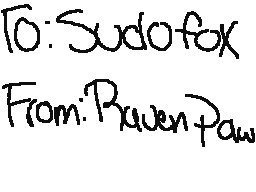 To: Sudofox
From: Raven Paw